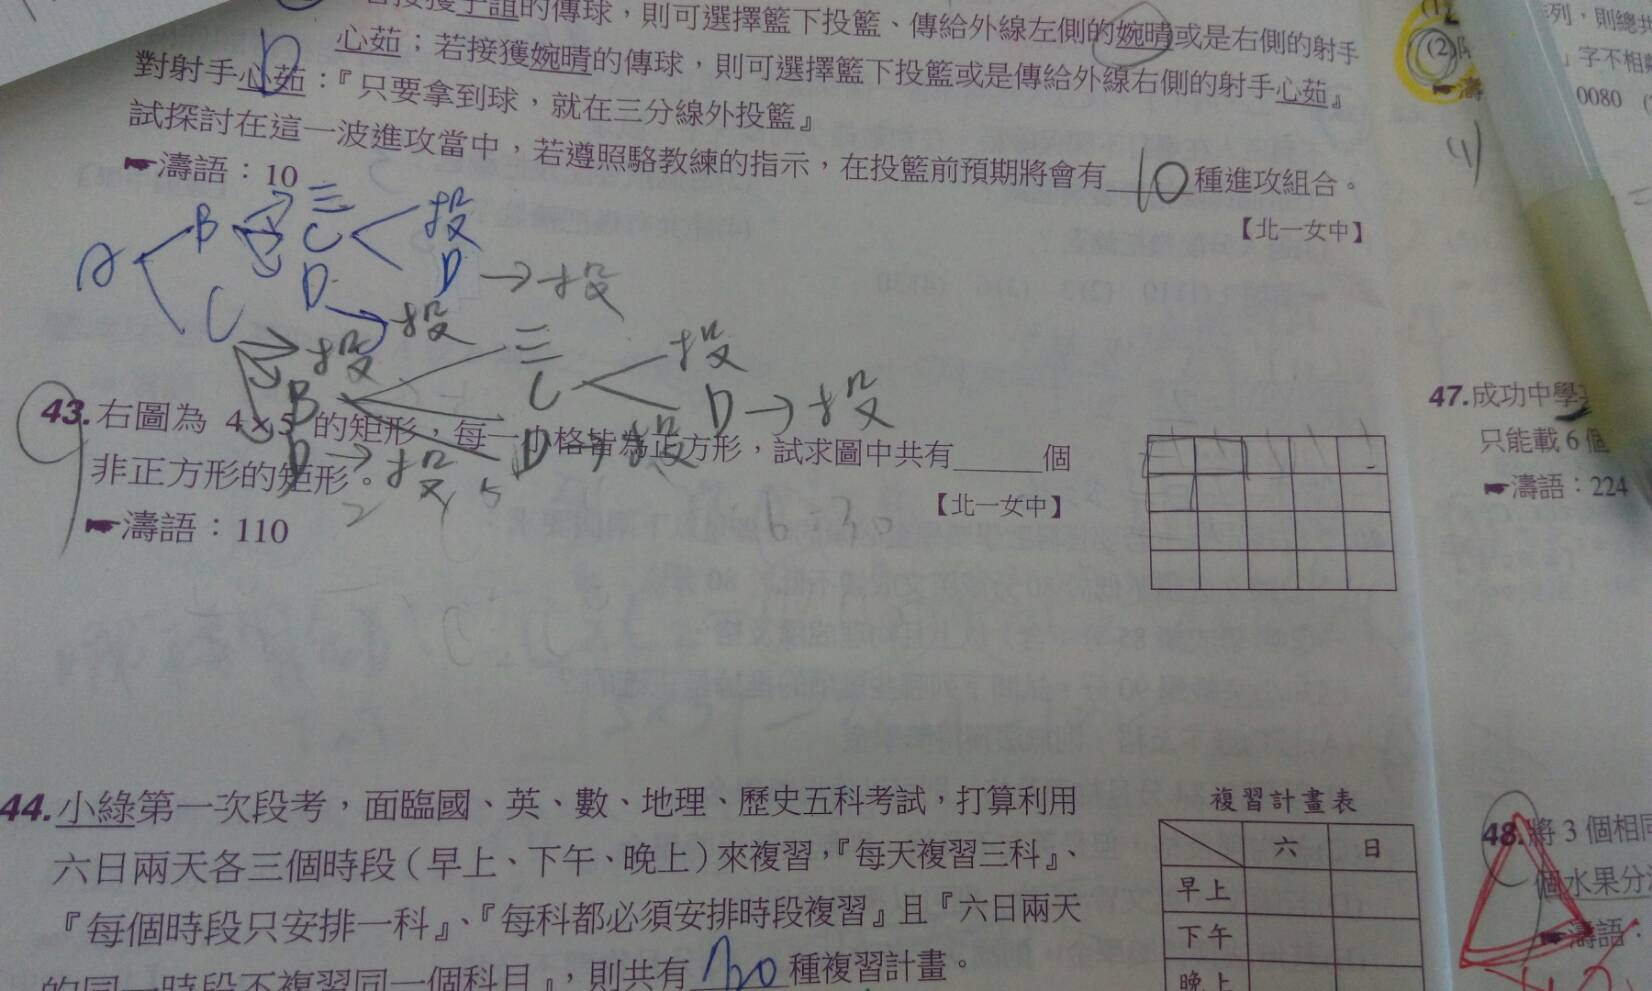 的傳球，則可選擇籃下投籃、傳給外線左側的婉晴或是右側的射手
心茹；若接獲婉晴的傳球，則可選擇籃下投籃或是傳給外線右側的射手心茹』
對射手心茹：『只要拿到球，就在三分線外投籃』
試探討在這一波進攻當中，若遵照駱教練的指示，在投籃前預期將會有10種進攻組合。
☛濤語：10
【北一女中】
A B 三 投
C C D → 投
D → 投
投 三 投
B C D → 投
D → 投
D → 投
43.右圖為 4×5 的矩形，每一小格皆為正方形，試求圖中共有______個
非正方形的矩形。
【北一女中】
☛濤語：110
44.小綠第一次段考，面臨國、英、數、地理、歷史五科考試，打算利用
六日兩天各三個時段（早上、下午、晚上）來複習，『每天複習三科』、
『每個時段只安排一科』、『每科都必須安排時段複習』且『六日兩天
的同一時段不複習同一個科目』，則共有 種複習計畫。
複習計畫表
六 日
早上
下午
晚上
(2)
列，則總共
」字不相鄰
0080
(1)
47.成功中學
只能載 6 個
☛濤語：224
48.將 3 個相同
個水果分
☛濤語：